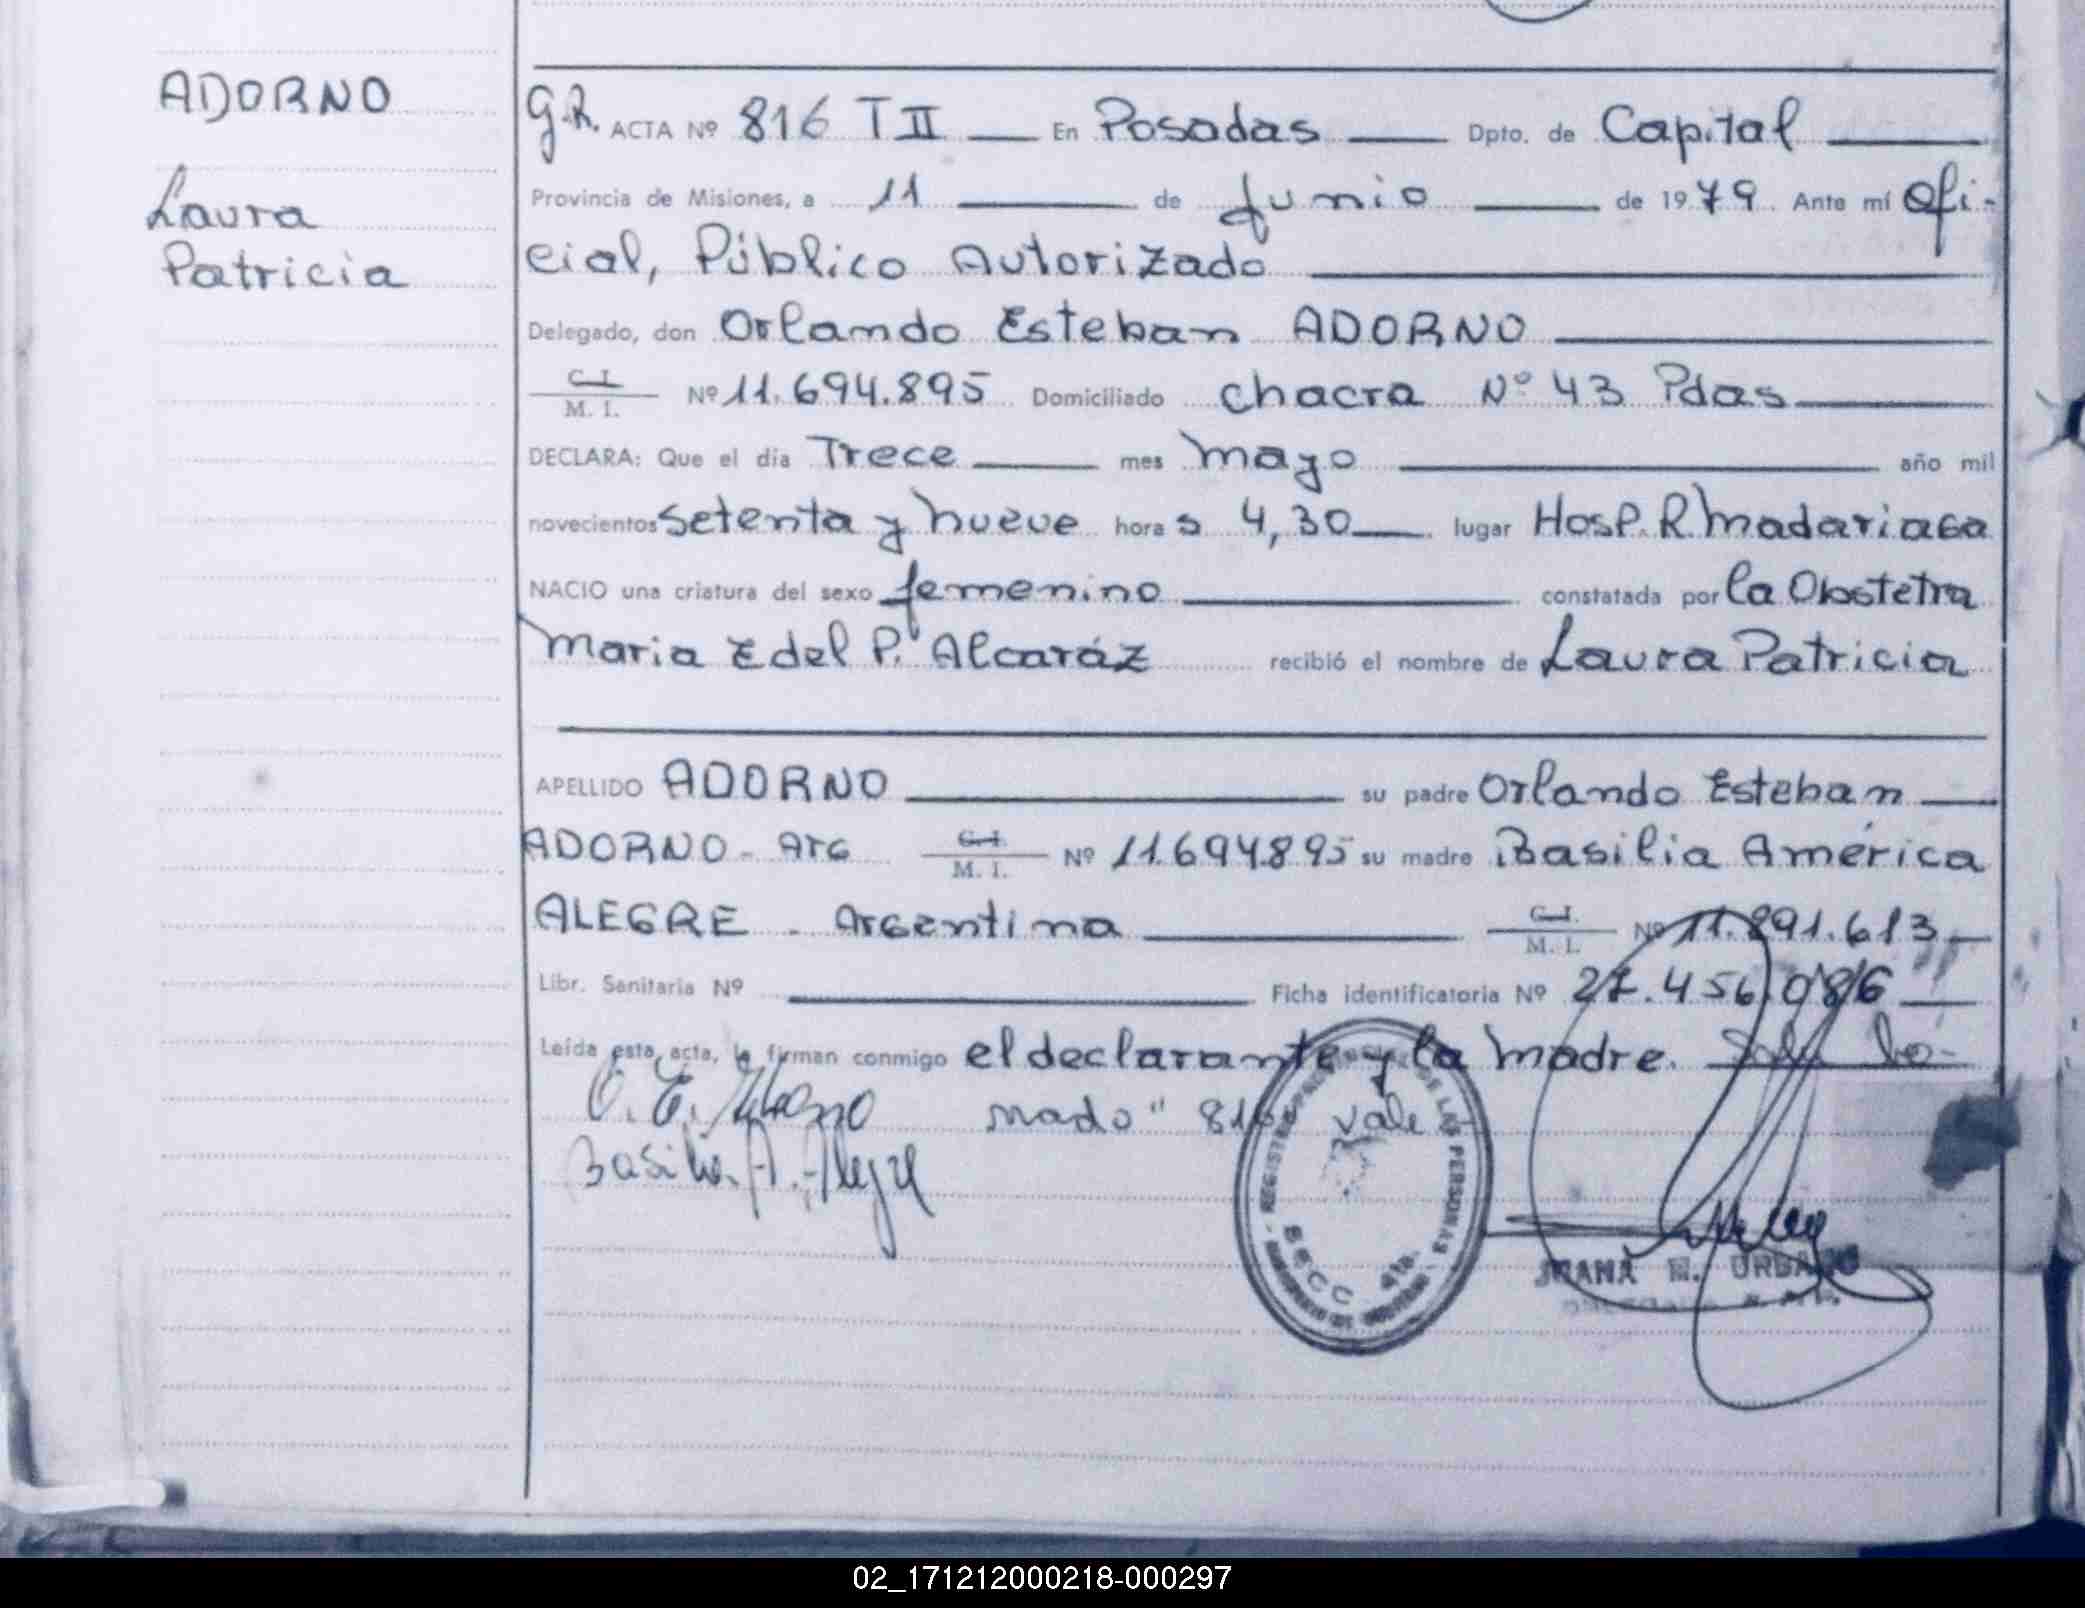 ADORNO
Laura
Patricia
G.R. ACTA Nº 816 T II En Posadas Dpto. de Capital
Provincia de Misiones, a 11 de Junio de 1979. Ante mí Ofi-
cial, Público Autorizado
Delegado, don Orlando Esteban ADORNO
C.I.
M. I. Nº 11.694.895 Domiciliado chacra Nº 43 Pdas
DECLARA: Que el día Trece mes mayo año mil
novecientos setenta y nueve hora s 4,30 lugar Hosp. R. Madariaga
NACIO una criatura del sexo femenino constatada por la Obstetra
Maria Edel P. Alcaráz recibió el nombre de Laura Patricia
APELLIDO ADORNO su padre Orlando Esteban
ADORNO - Arg C.I.
M. I. Nº 11.694.895 su madre Basilia América
ALEGRE - Argentina C.I.
M. I. Nº 11.891.613
Libr. Sanitaria Nº Ficha identificatoria Nº 27.456.086
Leída esta acta, la firman conmigo el declarante y la madre.
O. E. Adorno nado" 816 vale
Basilia A. Alegre
REGISTRO PROVINCIAL DE LAS PERSONAS
SECC 4ta.
JUANA E. URBANO
02_171212000218-000297